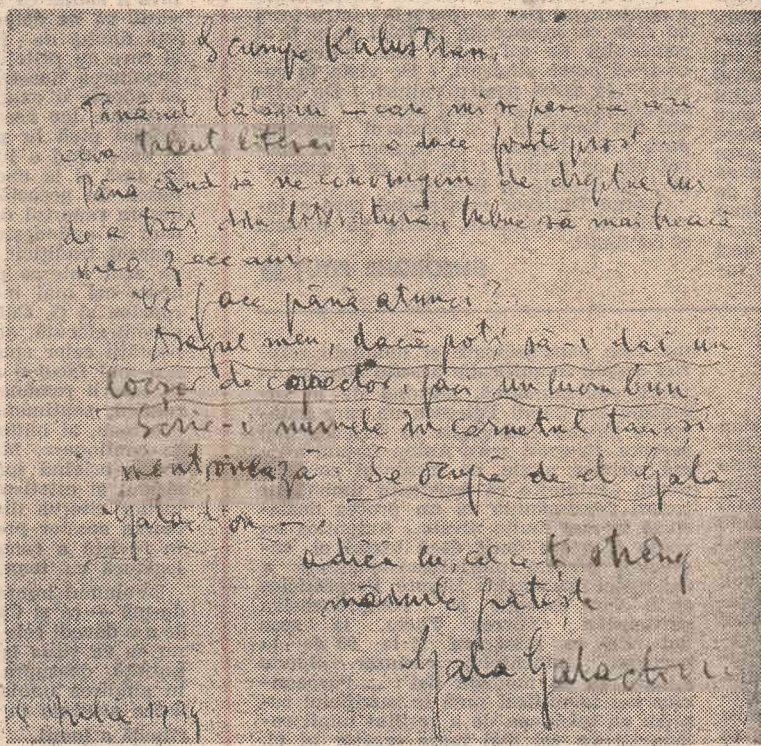 Scumpe Kalustian,
Tânărul Calagiu — care mi se pare că are
ceva talent literar — o duce foarte prost.
Până când să ne convingem de dreptul lui
de a trăi din literatură, trebue să mai treacă
vreo zece ani.
Ce face până atunci?
Dragul meu, dacă poți să-i dai un
locșor de corector, faci un lucru bun.
Scrie-i numele în carnetul tău și
mentionează Se ocupă de el Gala
Galaction —,
adică eu, cel ce-ți strâng
mâinile frățește
Gala Galaction
Iulie 1939